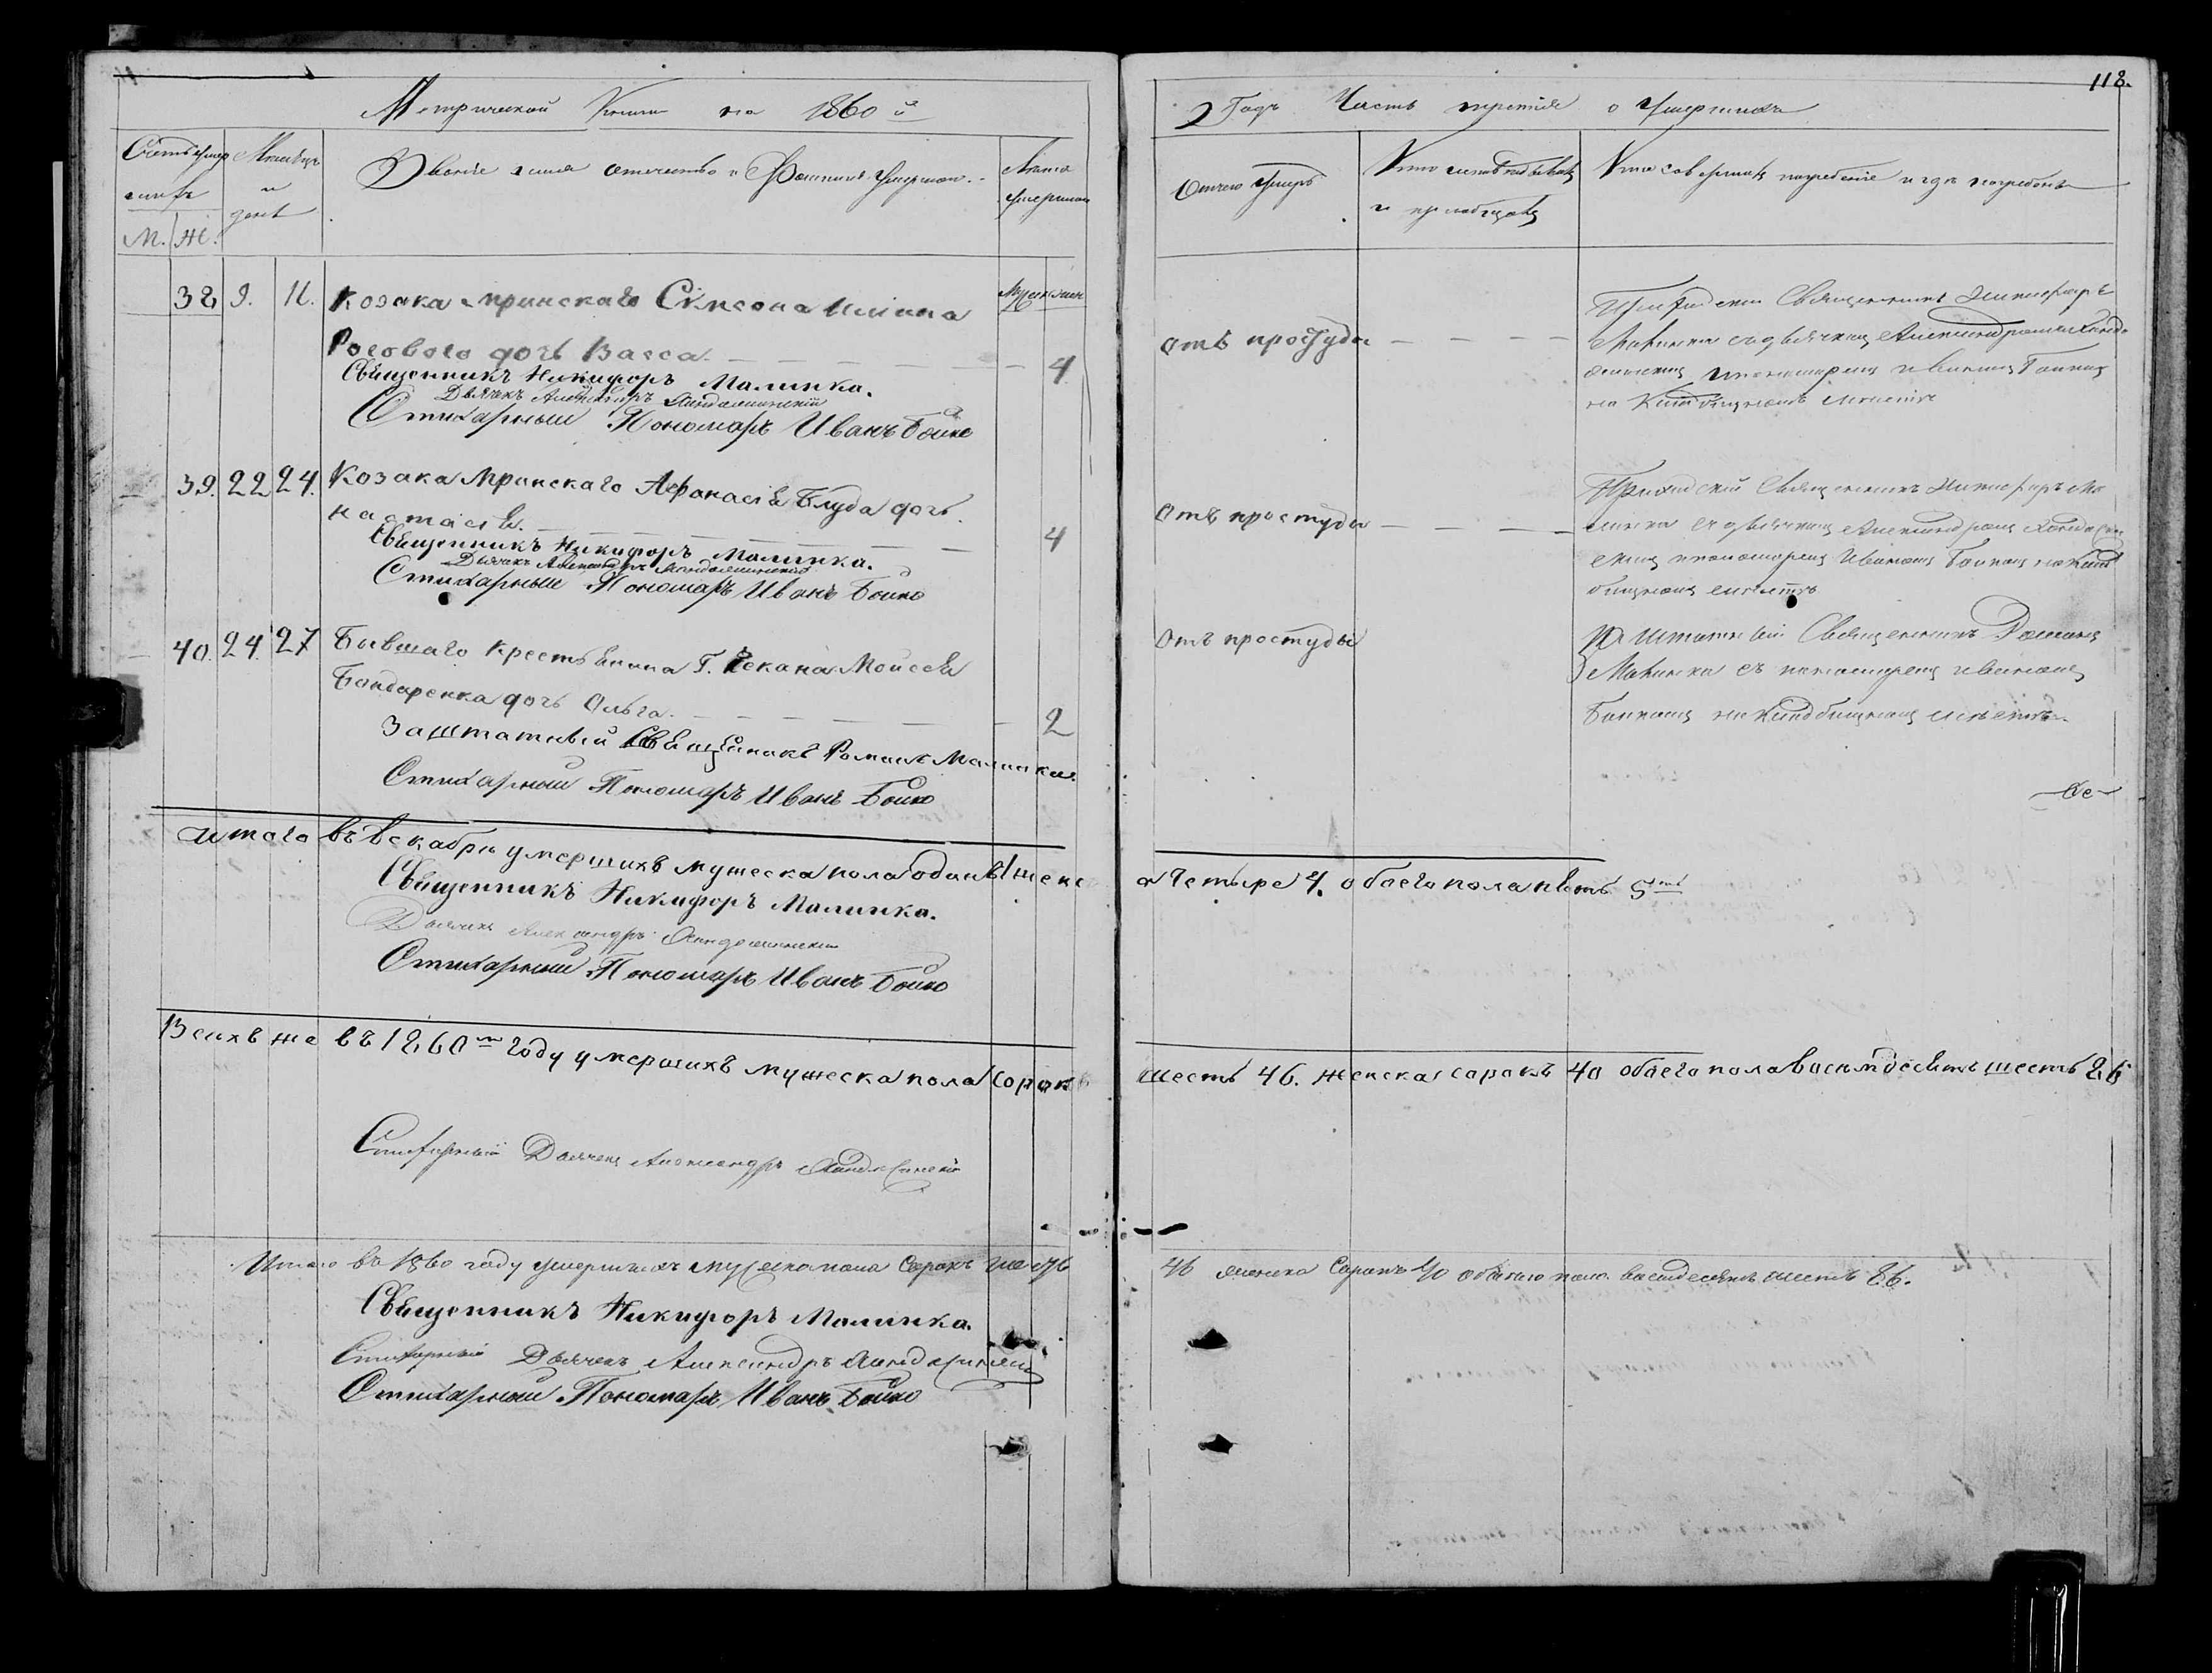 118.
Метрической Книги на 1860 й
Годъ Часть третія о Умершихъ
Счетъ умер
шихъ
М. Ж.
Месяцъ
и
день
Званіе имя отечество и Фамилія Умершаго
Лета
умершаго
Отчего умеръ
Кто исповедывалъ
и пріобщалъ
Кто совершилъ погребеніе и где погребенъ
38 9. 11. Козака Мринскаго Сімеона
Росоваго дочь Васса. 4
Священникъ Никифоръ Малинка.
Дьячекъ Александръ
Стихарный Пономарь Иванъ Бойко
отъ простуды
Приходскій Священникъ Никифоръ
Малинка съ дьячкомъ Александромъ
пономаремъ Иваномъ Бойкомъ
на Кладбищномъ
39. 22 24. Козака Мринскаго Афанасія Блуда дочь
Настасія. 4
Священникъ Никифоръ Малинка.
Дьячекъ Александръ
Стихарный Пономарь Иванъ Бойко
отъ простуды
Приходскій Священникъ Никифоръ Ма
линка съ дьячкомъ Александромъ
пономаремъ Иваномъ Бойкомъ на Клад
бищномъ
40. 24. 27 Бывшаго крестьянина Г. Мойсея
Бондаренка дочь Ольга. 2
Заштатный Священикъ Романъ Малинка
Стихарный Пономарь Иванъ Бойко
Отъ простуды
Заштатный Священникъ Романъ
Малинка съ пономаремъ Иваномъ
Бойкомъ на Кладбищномъ
Итого въ Декабри умершихъ мужеска пола одинъ 1 женс
а четыре 4. обоего пола пять 5
Священникъ Никифоръ Малинка.
Дьячекъ Александръ
Стихарный Пономарь Иванъ Бойко
Всихъ же въ 1860 году умершихъ мужеска пола сорокъ
шесть 46. женска сорокъ 40 обоего пола восьмдесятъ шесть 86
Стихарный Дьячекъ Александръ
Итого въ 1860 году умершихъ мужеска пола Сорокъ 46
46 женска Сорокъ 40 обоего пола восмдесятъ шесть 86.
Священникъ Никифоръ Малинка.
Стихарный Дьячекъ Александръ
Стихарный Пономарь Иванъ Бойко